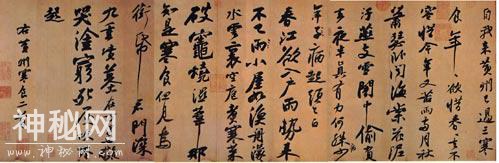 自我來黃州已過三寒
食年〻欲惜春〻去不
容惜今年又苦雨兩月秋
蕭瑟卧聞海棠花泥
汙燕支雪闇中偷負
去夜半真有力何殊少
年子病起頭已白
春江欲入戶雨勢來
不已雨小屋如漁舟濛〻
水雲裏空庖煮寒菜
破竈燒濕葦那
知是寒食但見烏
銜帋君門深
九重墳墓在
哭塗窮死
起
右黃州寒食二首
神秘网